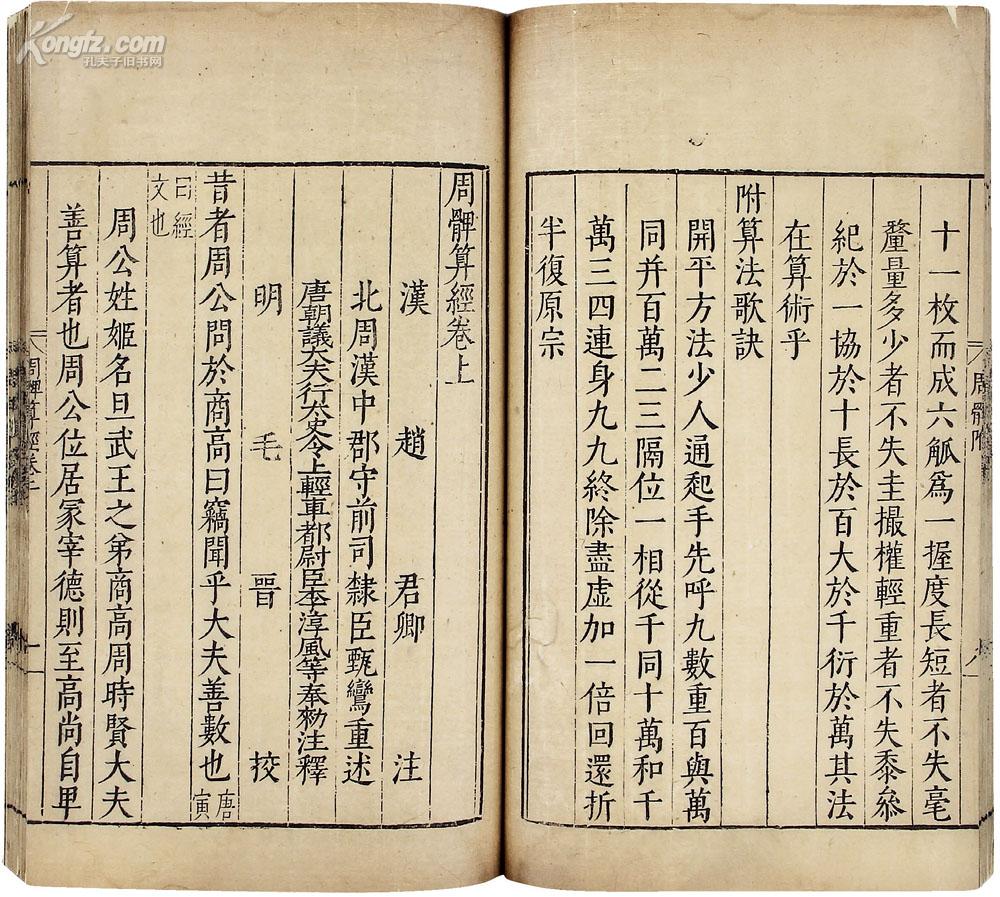 Kongfz.com
孔夫子旧书网
十一枚而成六觚爲一握度長短者不失毫
釐量多少者不失圭撮權輕重者不失黍絫
紀於一協於十長於百大於千衍於萬其法
在算術乎
附算法歌訣
開平方法少人通起手先呼九數重百與萬
同并百萬二三隔位一相從千同十萬和千
萬三四連身九九終除盡虛加一倍回還折
半復原宗
周髀附
周髀算經卷上
漢 趙 君卿 注
北周漢中郡守前司隸臣甄鸞重述
唐朝議大夫行太史令上輕車都尉臣李淳風等奉勑注釋
明 毛 晉 挍
昔者周公問於商高曰竊聞乎大夫善數也唐寅
曰經文也
周公姓姬名旦武王之弟商高周時賢大夫
善算者也周公位居冢宰德則至高尚自卑
周髀算經卷上